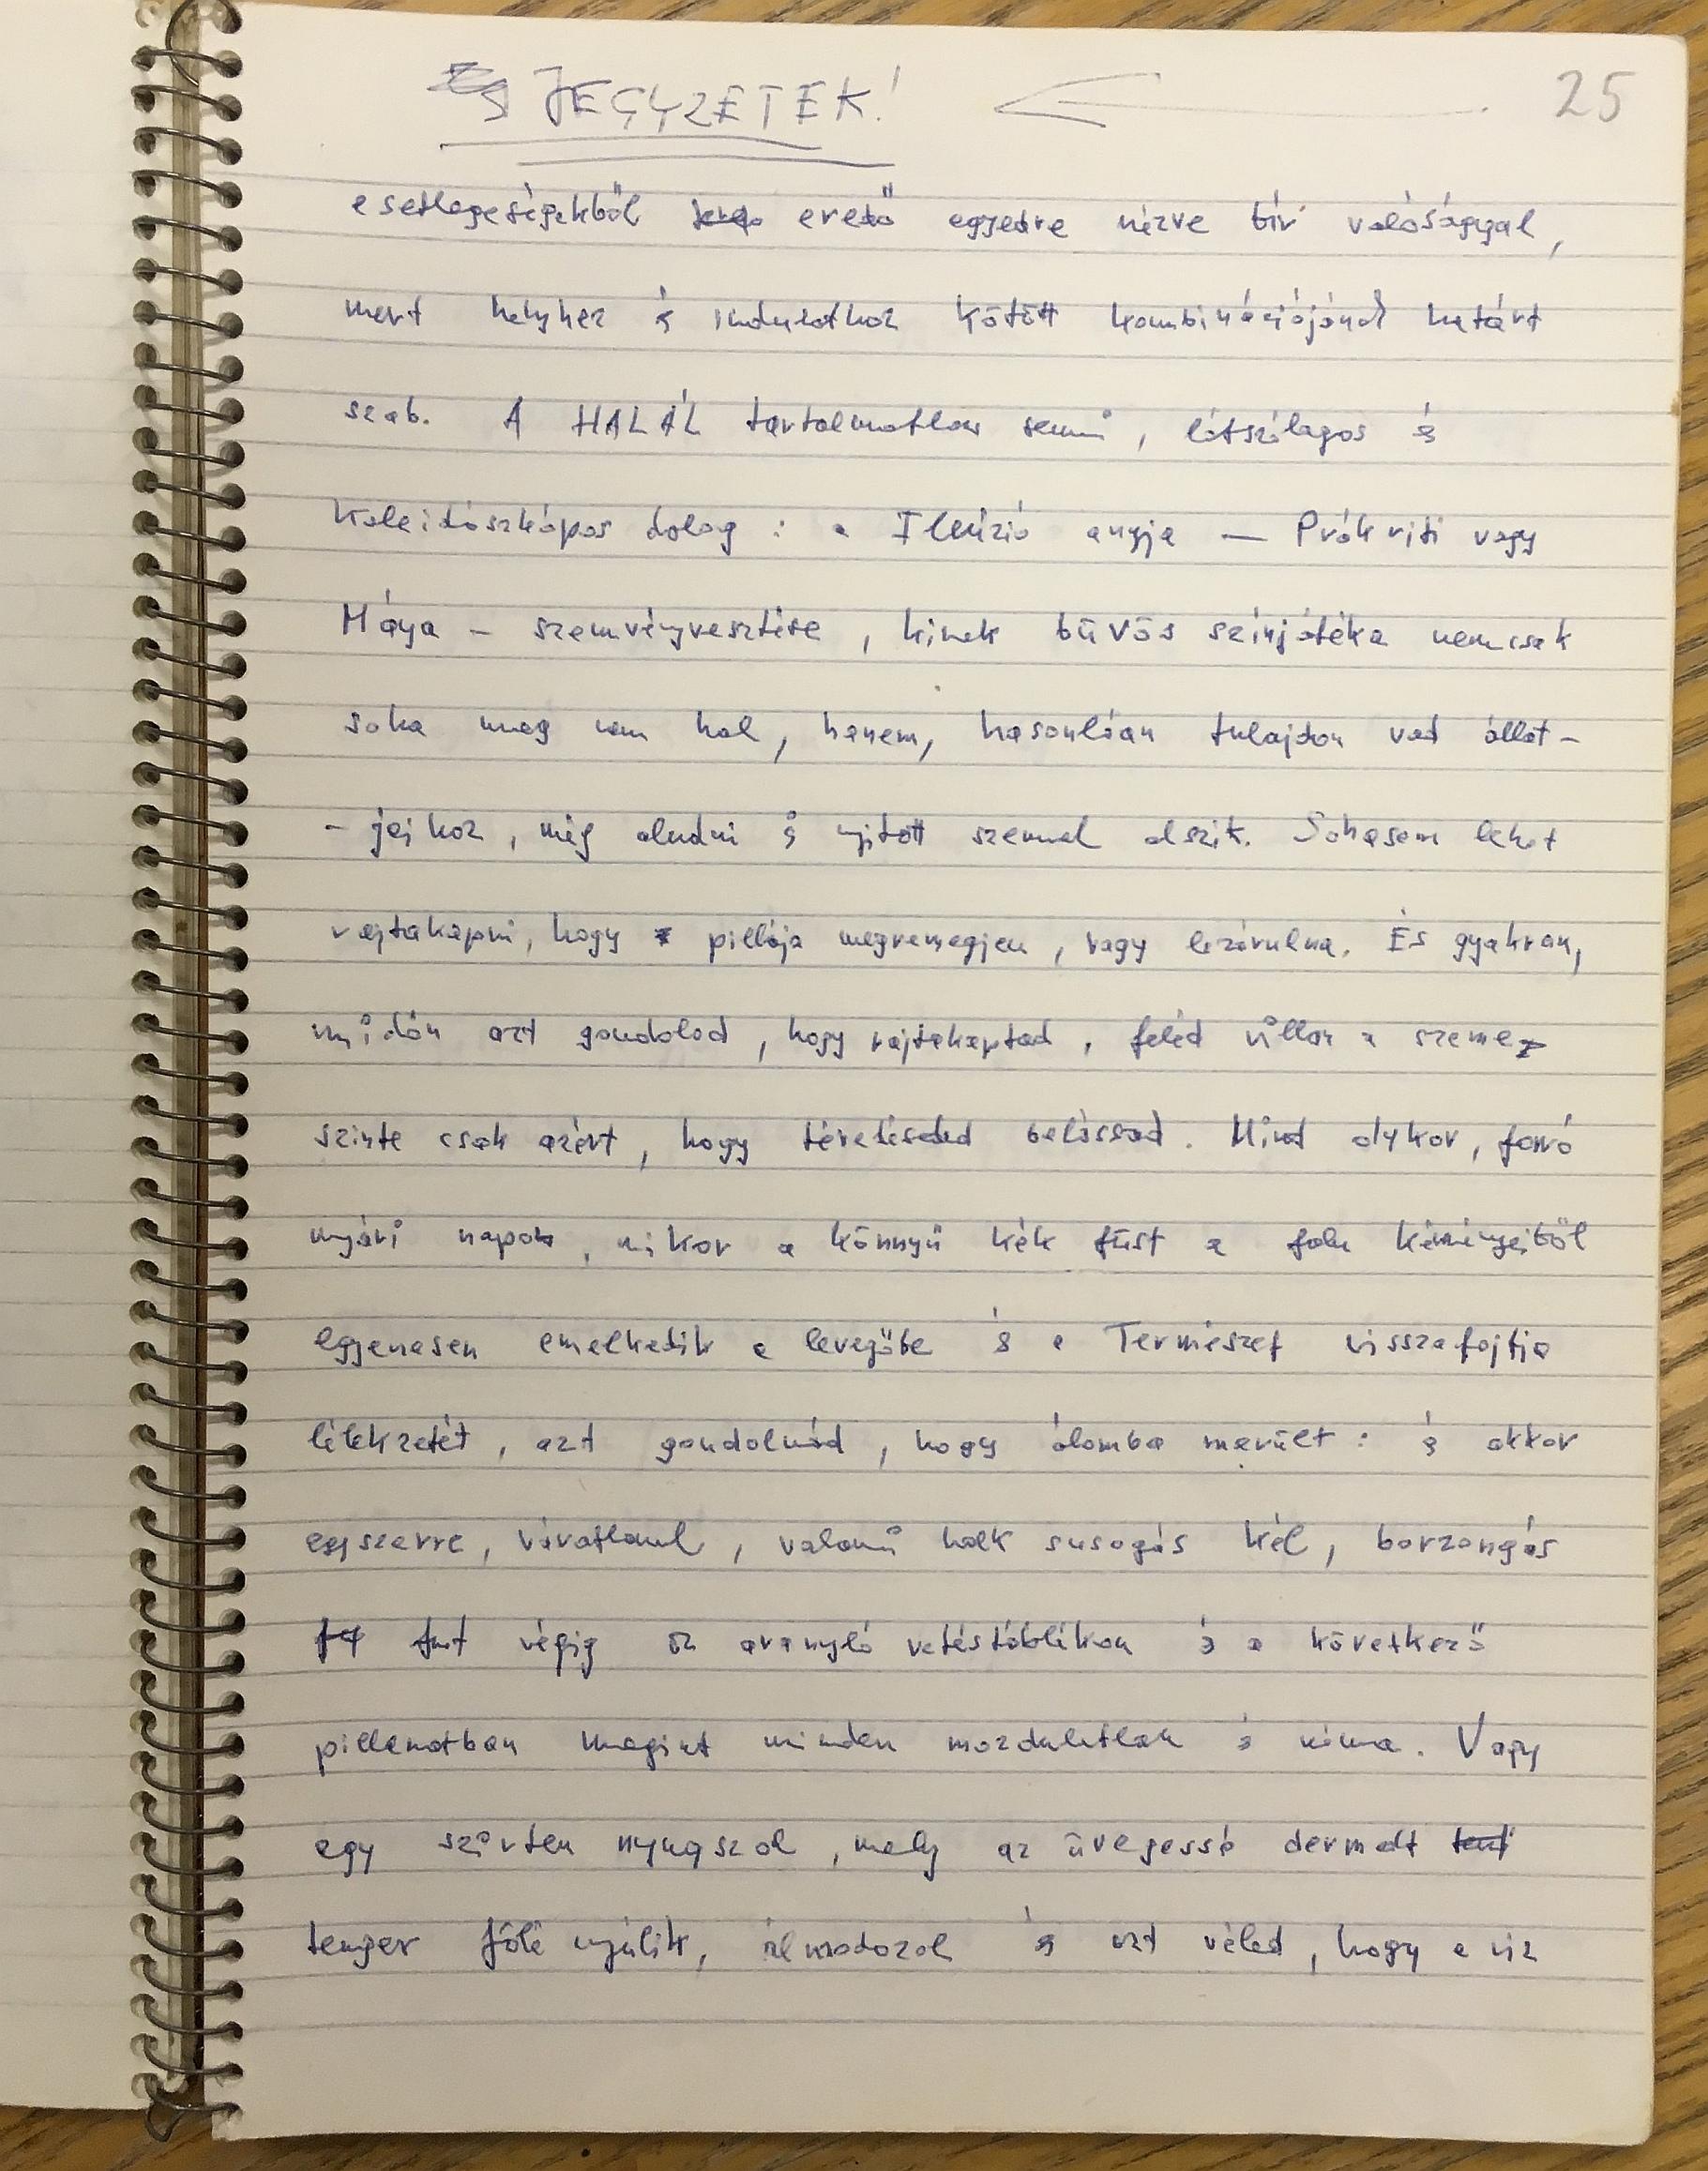 JEGYZETEK!
25
esetlegességekből eredő egyedre nézve bír valósággal,
mert helyhez és indulathoz kötött kombinációjának határt
szab. A HALÁL tartalmatlan semmi, látszólagos és
kaleidószkópos dolog: a Illúzió anyja — Prákriti vagy
Mája — szemvényvesztése, kinek bűvös színjátéka nemcsak
soha meg nem hal, hanem, hasonlóan tulajdon vad állat-
-jaihoz, még aludni is nyitott szemmel alszik. Sohasem lehet
rajtakapni, hogy pillája megremegjen, vagy lezárulna. És gyakran,
midőn azt gondolod, hogy rajtakaptad, feléd villan a szeme
szinte csak azért, hogy tévedéseded belássad. Mind olykor, forró
nyári napon, mikor a könnyű kék füst a falu kéményeiből
egyenesen emelkedik a levegőbe és a Természet visszafojtja
lélekzetét, azt gondolnád, hogy álomba merült: és akkor
egyszerre, váratlanul, valami halk susogás kél, borzongás
fut végig az aranyló vetéstáblákon és a következő
pillanatban megint minden mozdulatlan és néma. Vagy
egy szirten nyugszol, mely az üvegessé dermedt
tenger fölé nyúlik, álmodozol és azt véled, hogy a víz